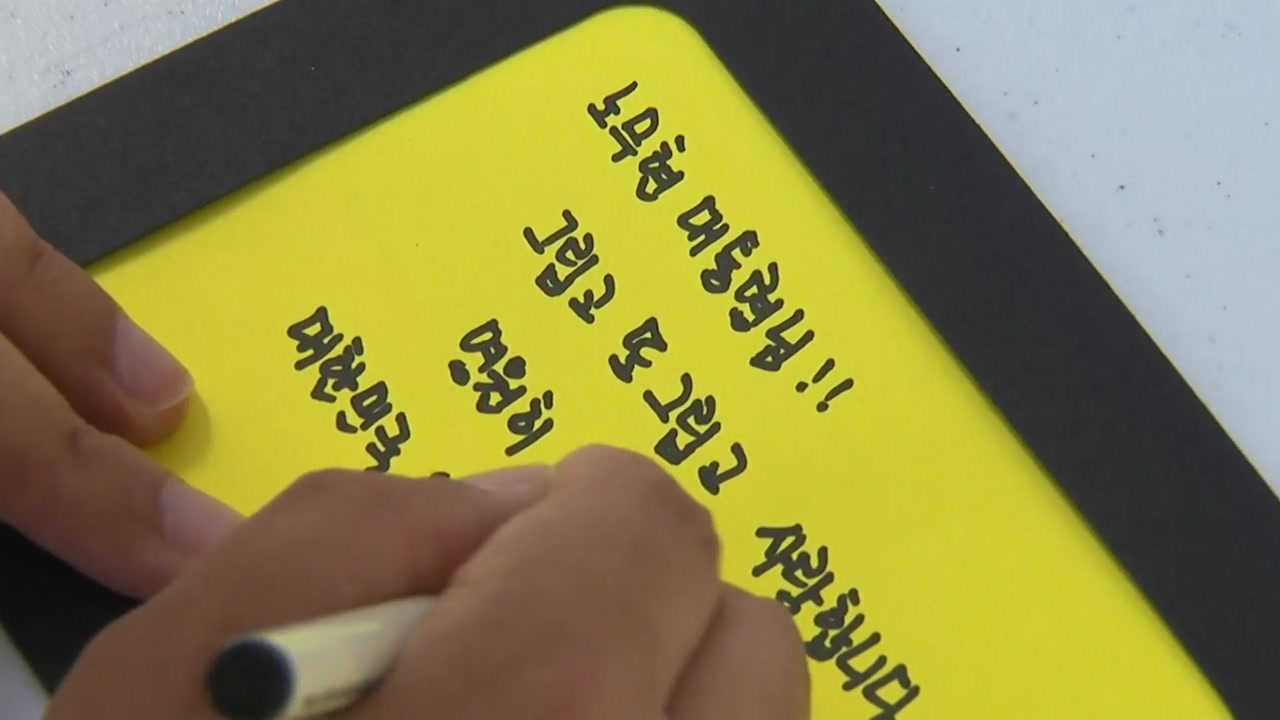 노무현 대통령님!!
그립고 또 그립고 사랑합니다
영원히
대한민국